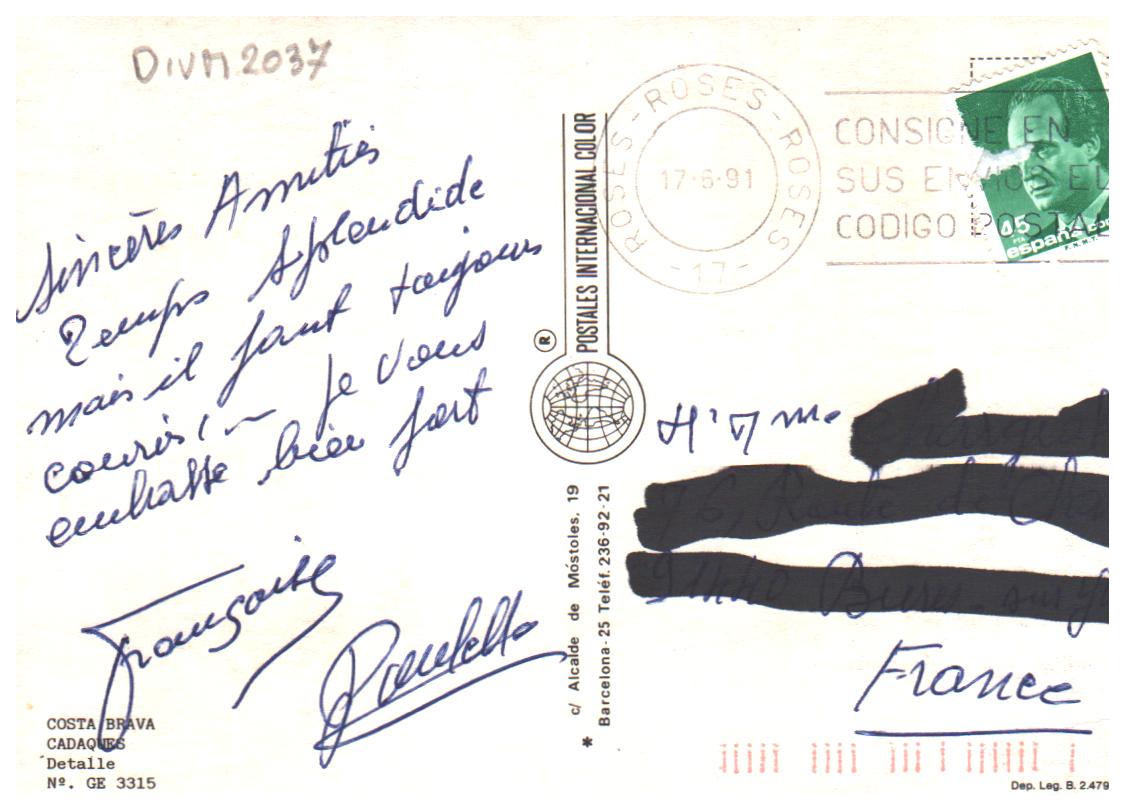 DIVM 2037
Sincères Amitiés
Temps Splendide
mais il faut toujours
courir, ~ Je vous
embrasse bien fort
Françoise
Paulette
COSTA BRAVA
CADAQUES
Detalle
Nº. GE 3315
POSTALES INTERNACIONAL COLOR
®
c/ Alcalde de Móstoles, 19
* Barcelona-25 Teléf. 236-92-21
ROSES - ROSES - ROSES
17-6-91
- 17 -
CONSIGNE EN
SUS ENVIOS EL
CODIGO POSTAL
45
PTA
españa
Mme
France
Dep. Leg. B. 2.479